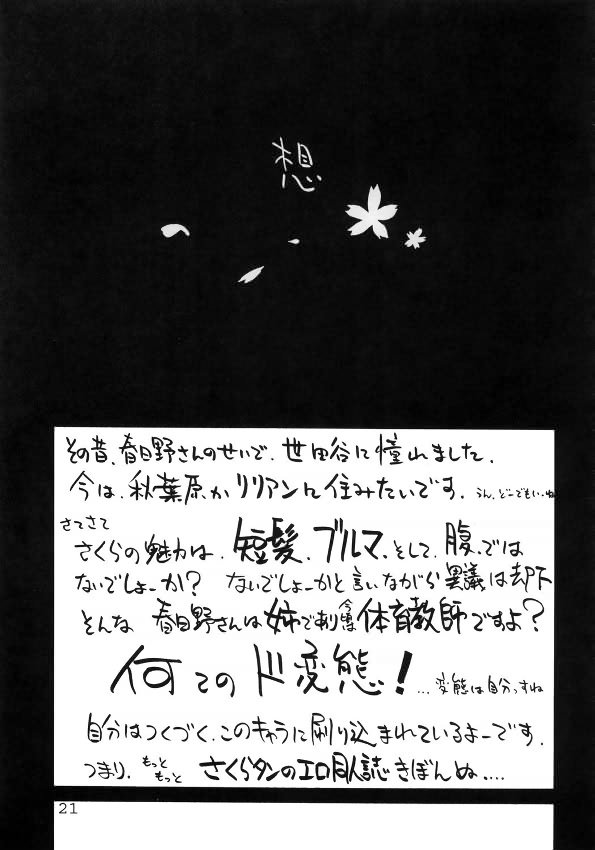 想
その昔、春日野さんのせいで、世田谷に憧れました。
今は、秋葉原かリリアンに住みたいです。うん、どーでもいいね
さてさて
さくらの魅力は、短髪、ブルマ、そして、腹、では
ないでしょーか? ないでしょーかと言いながら異議は却下
そんな 春日野さんは姉であり今は体育教師ですよ?
何てのド変態!...変態は自分っすね
自分はつくづく、このキャラに刷り込まれているよーです。
つまり、もっともっと さくらタンのエロ同人誌きぼんぬ....
21